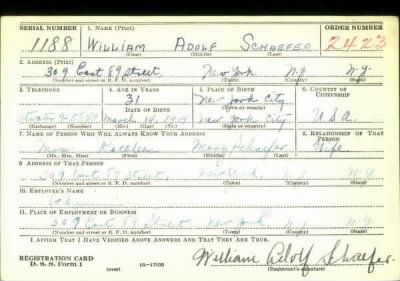 SERIAL NUMBER 1. NAME (Print) ORDER NUMBER
1188 WILLIAM ADOLF SCHAEFER 2423
(First) (Middle) (Last)
2. ADDRESS (Print)
309 East 89 Street, New York N.Y. N.Y.
(Number and street or R. F. D. number) (Town) (County) (State)
3. TELEPHONE 4. AGE IN YEARS 5. PLACE OF BIRTH 6. COUNTRY OF CITIZENSHIP
31 New York City
DATE OF BIRTH (Town or county)
March 14, New York City U.S.A.
(Exchange) (Number) (Mo.) (Day) (Yr.) (State or country)
7. NAME OF PERSON WHO WILL ALWAYS KNOW YOUR ADDRESS 8. RELATIONSHIP OF THAT PERSON
Mrs. Kathleen Mary Schaefer Wife
(Mr., Mrs., Miss) (First) (Middle) (Last)
9. ADDRESS OF THAT PERSON
309 East 89 Street, New York, N.Y. N.Y.
(Number and street or R. F. D. number) (Town) (County) (State)
10. EMPLOYER'S NAME
11. PLACE OF EMPLOYMENT OR BUSINESS
309 East 89 Street New York N.Y. N.Y.
(Number and street or R. F. D. number) (Town) (County) (State)
I AFFIRM THAT I HAVE VERIFIED ABOVE ANSWERS AND THAT THEY ARE TRUE.
REGISTRATION CARD William Adolf Schaefer.
D. S. S. Form 1 (over) 16—17105 (Registrant's signature)